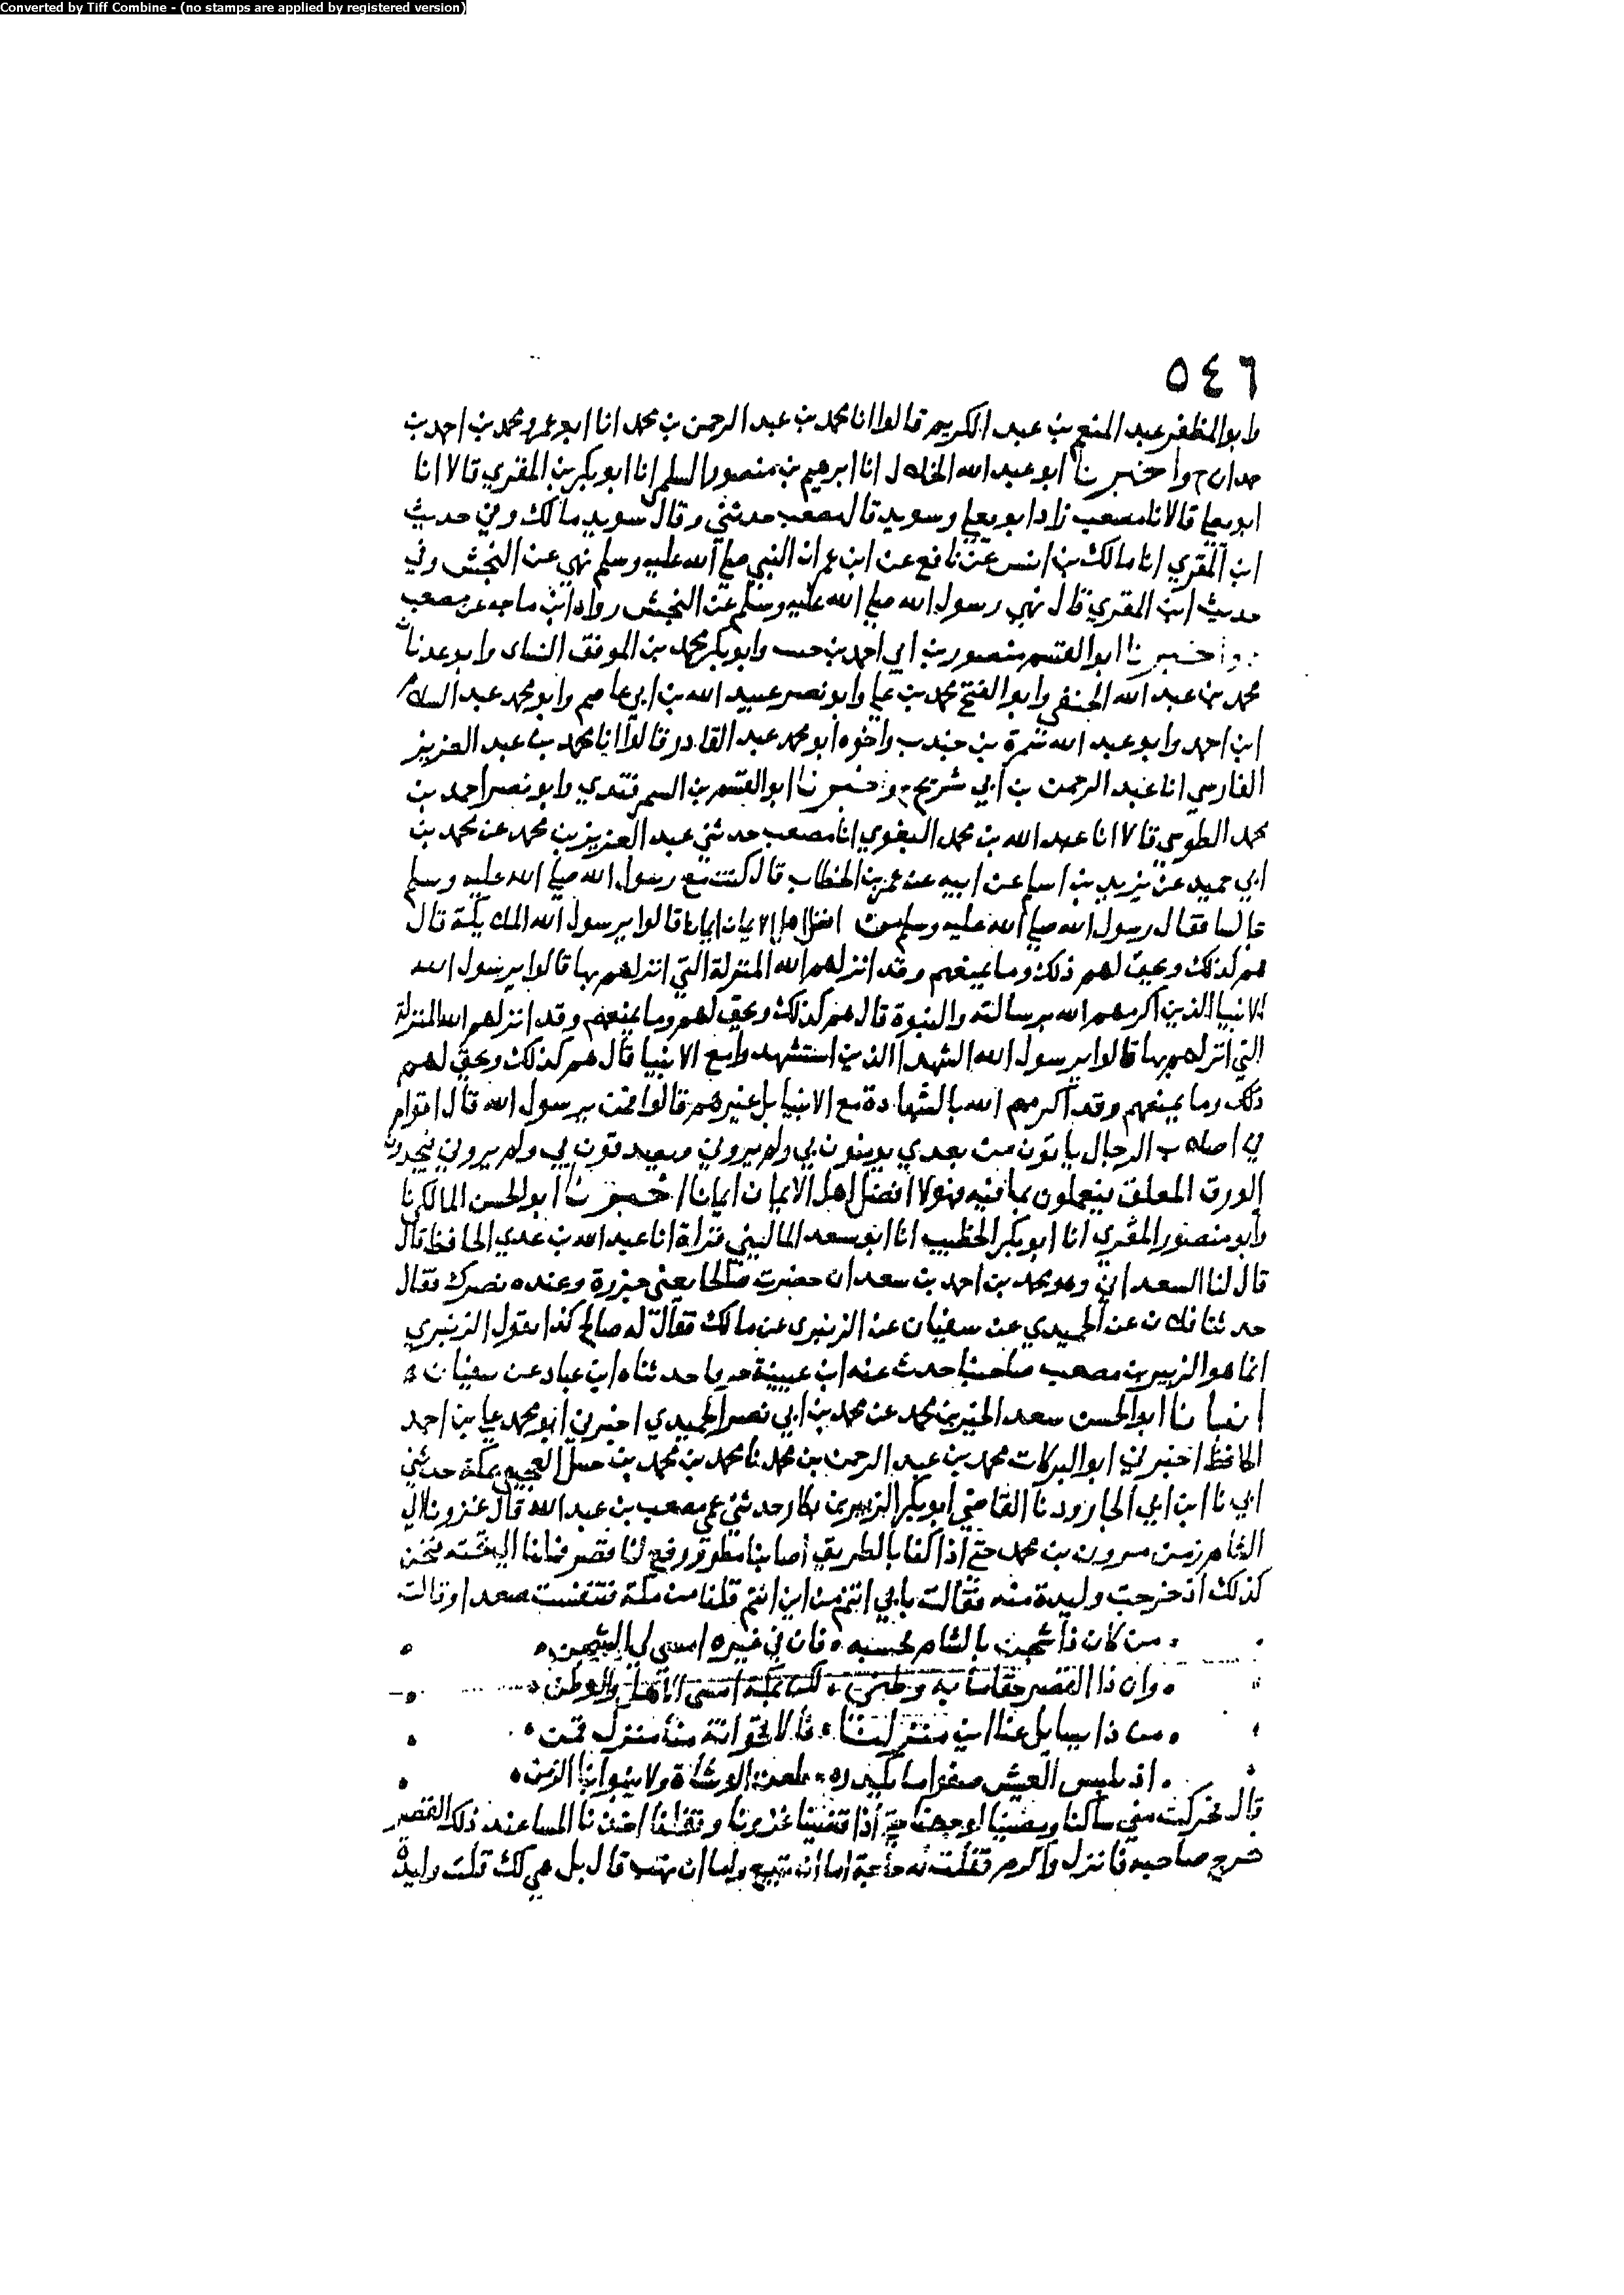 Converted by Tiff Combine - (no stamps are applied by registered version)
٥٤٦
وابو المظفر عبد المنعم بن عبد الكريم قالوا انا محمد بن عبد الرحمن بن محمد انا ابو عمرو محمد بن احمد بن
حمدان ح واخبرنا ابو عبد الله الخلال انا ابرهيم بن منصور السلمي انا ابو بكر بن المقري قالا انا
ابو يعلي قالا نا مصعب زاد ابو يعلي وسويد قال مصعب حدثني وقال سويد مالك وفي حديث
ابن المقري انا مالك بن انس عن نافع عن ابن عمر ان النبي صلي الله عليه وسلم نهي عن النجش وفي
حديث ابن المقري قال نهي رسول الله صلي الله عليه وسلم عن النجش رواه ابن ماجه عن مصعب
واخبرنا ابو القسم منصور بن ابي احمد بن وابو بكر محمد بن الموفق وابو عدنان
محمد بن عبد الله الحنفي وابو الفتح محمد بن علي وابو نصر عبيد الله بن ابي عاصم وابو محمد عبد السلام
ابن احمد وابو عبد الله سمرة بن جندب واخوه ابو محمد عبد القادر قالوا انا محمد بن عبد العزيز
الفارسي انا عبد الرحمن بن ابي شريح ح واخبرنا ابو القسم بن السمرقندي وابو نصر احمد بن
محمد الطوسي قالا انا عبد الله بن محمد البغوي انا مصعب حدثني عبد العزيز بن محمد عن محمد بن
ابي حميد عن يزيد بن اسلم عن ابيه عن عمر بن الخطاب قال كنت مع رسول الله صلي الله عليه وسلم
جالسا فقال رسول الله صلي الله عليه وسلم من افضل اهل الايمان ايمانا قالوا يرسول الله الملئكة قال
هم كذلك ويحق لهم ذلك وما يمنعهم وقد انزلهم الله المنزلة التي انزلهم بها قالوا يرسول الله
الانبيا الذين اكرمهم الله برسالته والنبوة قال هم كذلك ويحق لهم وما يمنعهم وقد انزلهم الله المنزلة
التي انزلهم بها قالوا يرسول الله الشهدا الذين استشهدوا مع الانبيا قال هم كذلك ويحق لهم
ذلك وما يمنعهم وقد اكرمهم الله بالشهادة مع الانبيا بل غيرهم قالوا فمن يرسول الله قال اقوام
في اصلاب الرجال ياتون من بعدي يومنون بي ولم يروني ويصدقون بي ولم يروني يجدون
الورق المعلق فيعملون بما فيه فهولا افضل اهل الايمان ايمانا اخبرنا ابو الحسن المالكي نا
وابو منصور المقري انا ابو بكر الخطيب انا ابو سعد الماليني قراة انا عبد الله بن عدي الحافظ قال
قال لنا السعداني وهو محمد بن احمد بن سعدان حضرت صالحا يعني جزرة وعنده نصرك فقال
حدثنا فلان عن الحميدي عن سفيان عن الزنبري عن مالك فقال له صالح كذا تقول الزنبري
انما هو الزبير بن مصعب صاحبنا حدث عنه ابن عيينة حدثناه ابن عباد عن سفيان ه
انبانا ابو الحسن سعد الخير بن محمد عن محمد بن ابي نصر الحميدي اخبرني ابو محمد علي بن احمد
الحافظ اخبرني ابو البركات محمد بن عبد الرحمن بن محمد نا محمد بن محمد بن بمكة حدثني
ابي نا ابن ابي الجارود نا القاضي ابو بكر الزبير بن بكار حدثني عمي مصعب بن عبد الله قال غزونا الي
الشام زمن مرون بن محمد حتي اذا كنا بالطريق اصابنا مطر ورفع لنا قصر فملنا الي فنحن
كذلك اذ خرجت وليدة منه فقالت بابي انتم من اين انتم قلنا من مكة فتنفست صعدا وقالت
من كان ذا شجن بالشام يحبسه فان في غيره امسي لي الشجن
وان ذا القصر حقا ما به وطني لكن بمكة امسي الاهل والوطن
من ذا يسايل عنا اين منزلنا فالاقحوانة منا منزل قمن
اذ نلبس العيش صفوا ما يكدره طعن الوشاة ولا ينبوا بنا الزمن
قال فحركت مني ساكنا ومضينا لوجهنا حتي اذا قضينا غزونا وقفلنا عند ذلك القصر
خرج صاحبه فانزل واكرم فقلت له حاجة اما ان تبيع واما ان تهب قال بل هي لك قلت وليدة